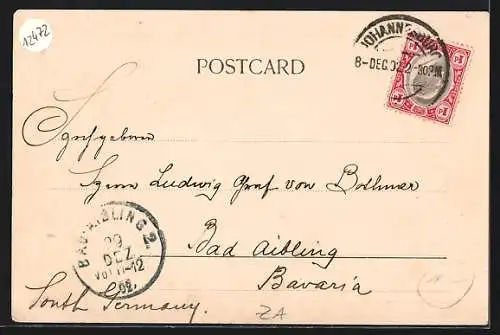 12472
JOHANNESBURG
8-DEC.02 2-30PM
POSTCARD
Hochgeboren
Herrn Ludwig Graf von Bothmer
Bad Aibling
Bavaria
South Germany.
BAD-AIBLING 2.
29
DEZ.
Vor 11-12
02.
ZA